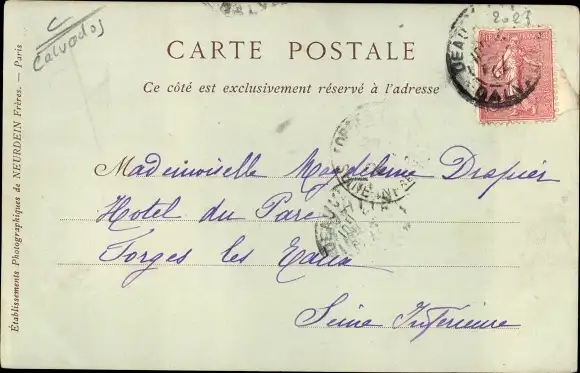 C
Calvados
2023
CARTE POSTALE
Ce côté est exclusivement réservé à l'adresse
Mademoiselle Magdeleine Drapier
Hotel du Parc
Forges les Eaux
Seine Inferieure
Établissements Photographiques de NEURDEIN Frères. — Paris